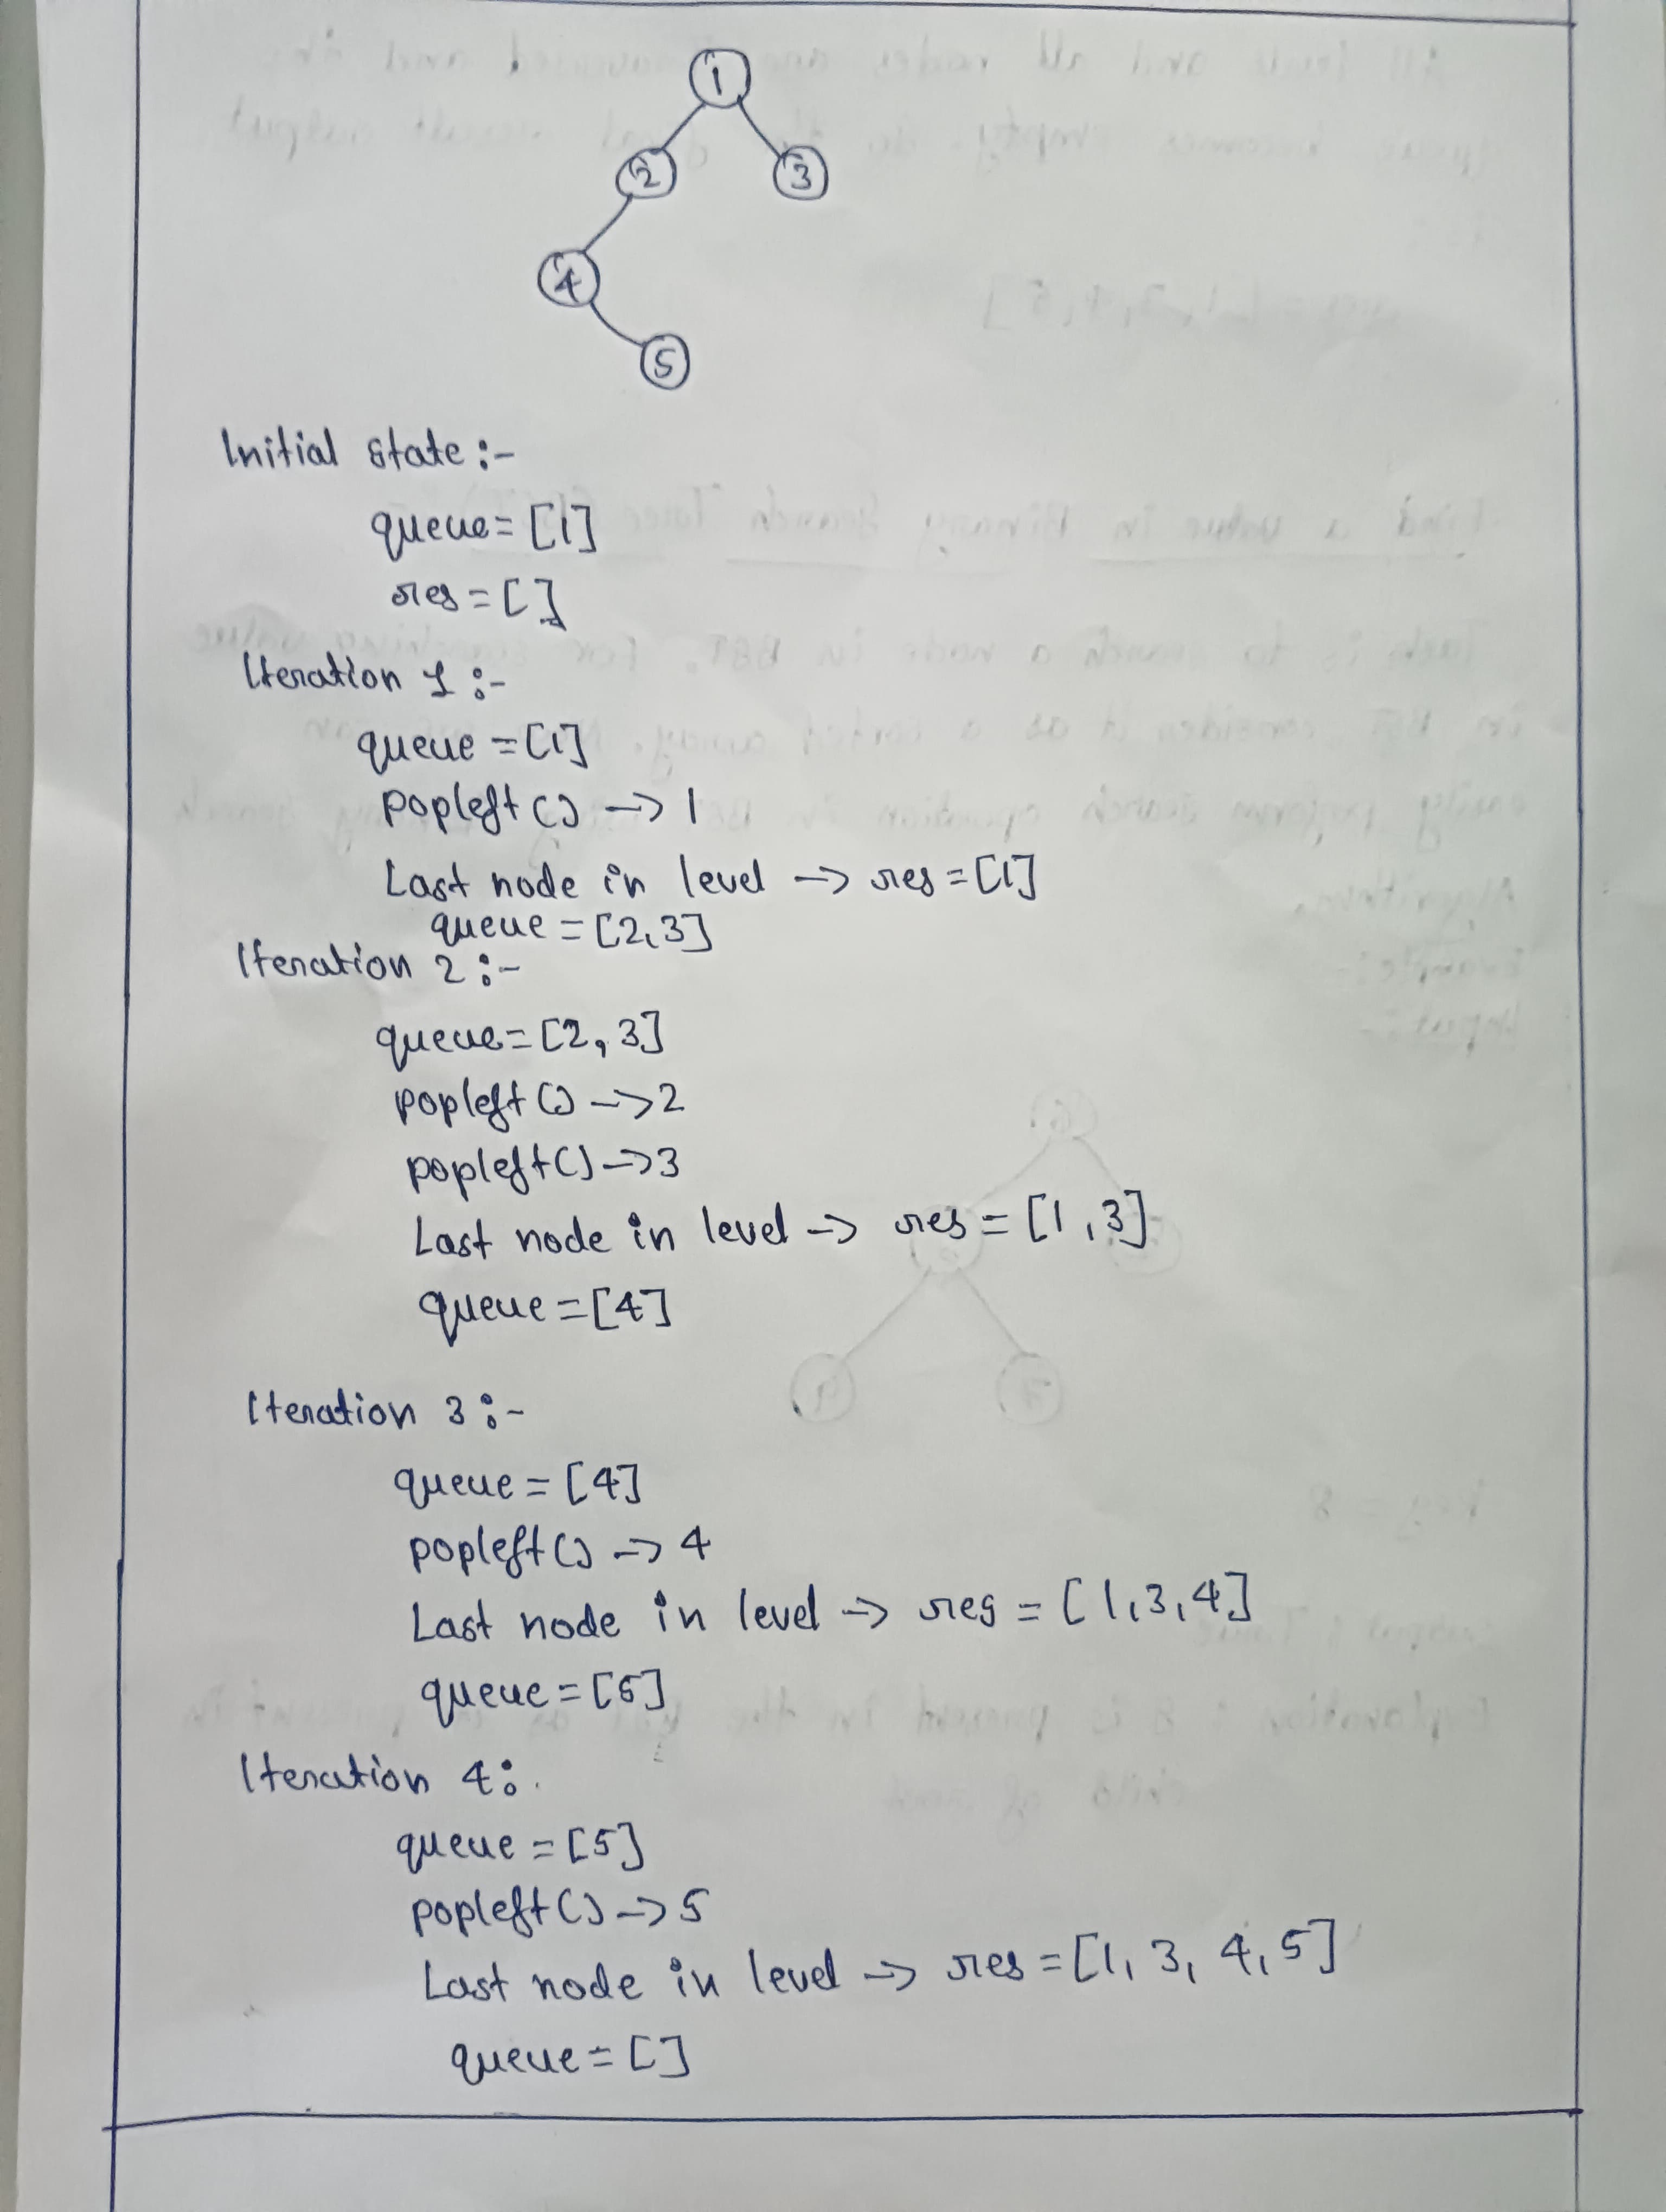 1
2 3
4
5
Initial state :-
queue = [1]
res = []
Iteration 1 :-
queue = [1]
popleft() -> 1
Last node in level -> res = [1]
queue = [2,3]
Iteration 2 :-
queue = [2, 3]
popleft() -> 2
popleft() -> 3
Last node in level -> res = [1, 3]
queue = [4]
Iteration 3 :-
queue = [4]
popleft() -> 4
Last node in level -> res = [1,3,4]
queue = [5]
Iteration 4 :.
queue = [5]
popleft() -> 5
Last node in level -> res = [1, 3, 4, 5]
queue = []